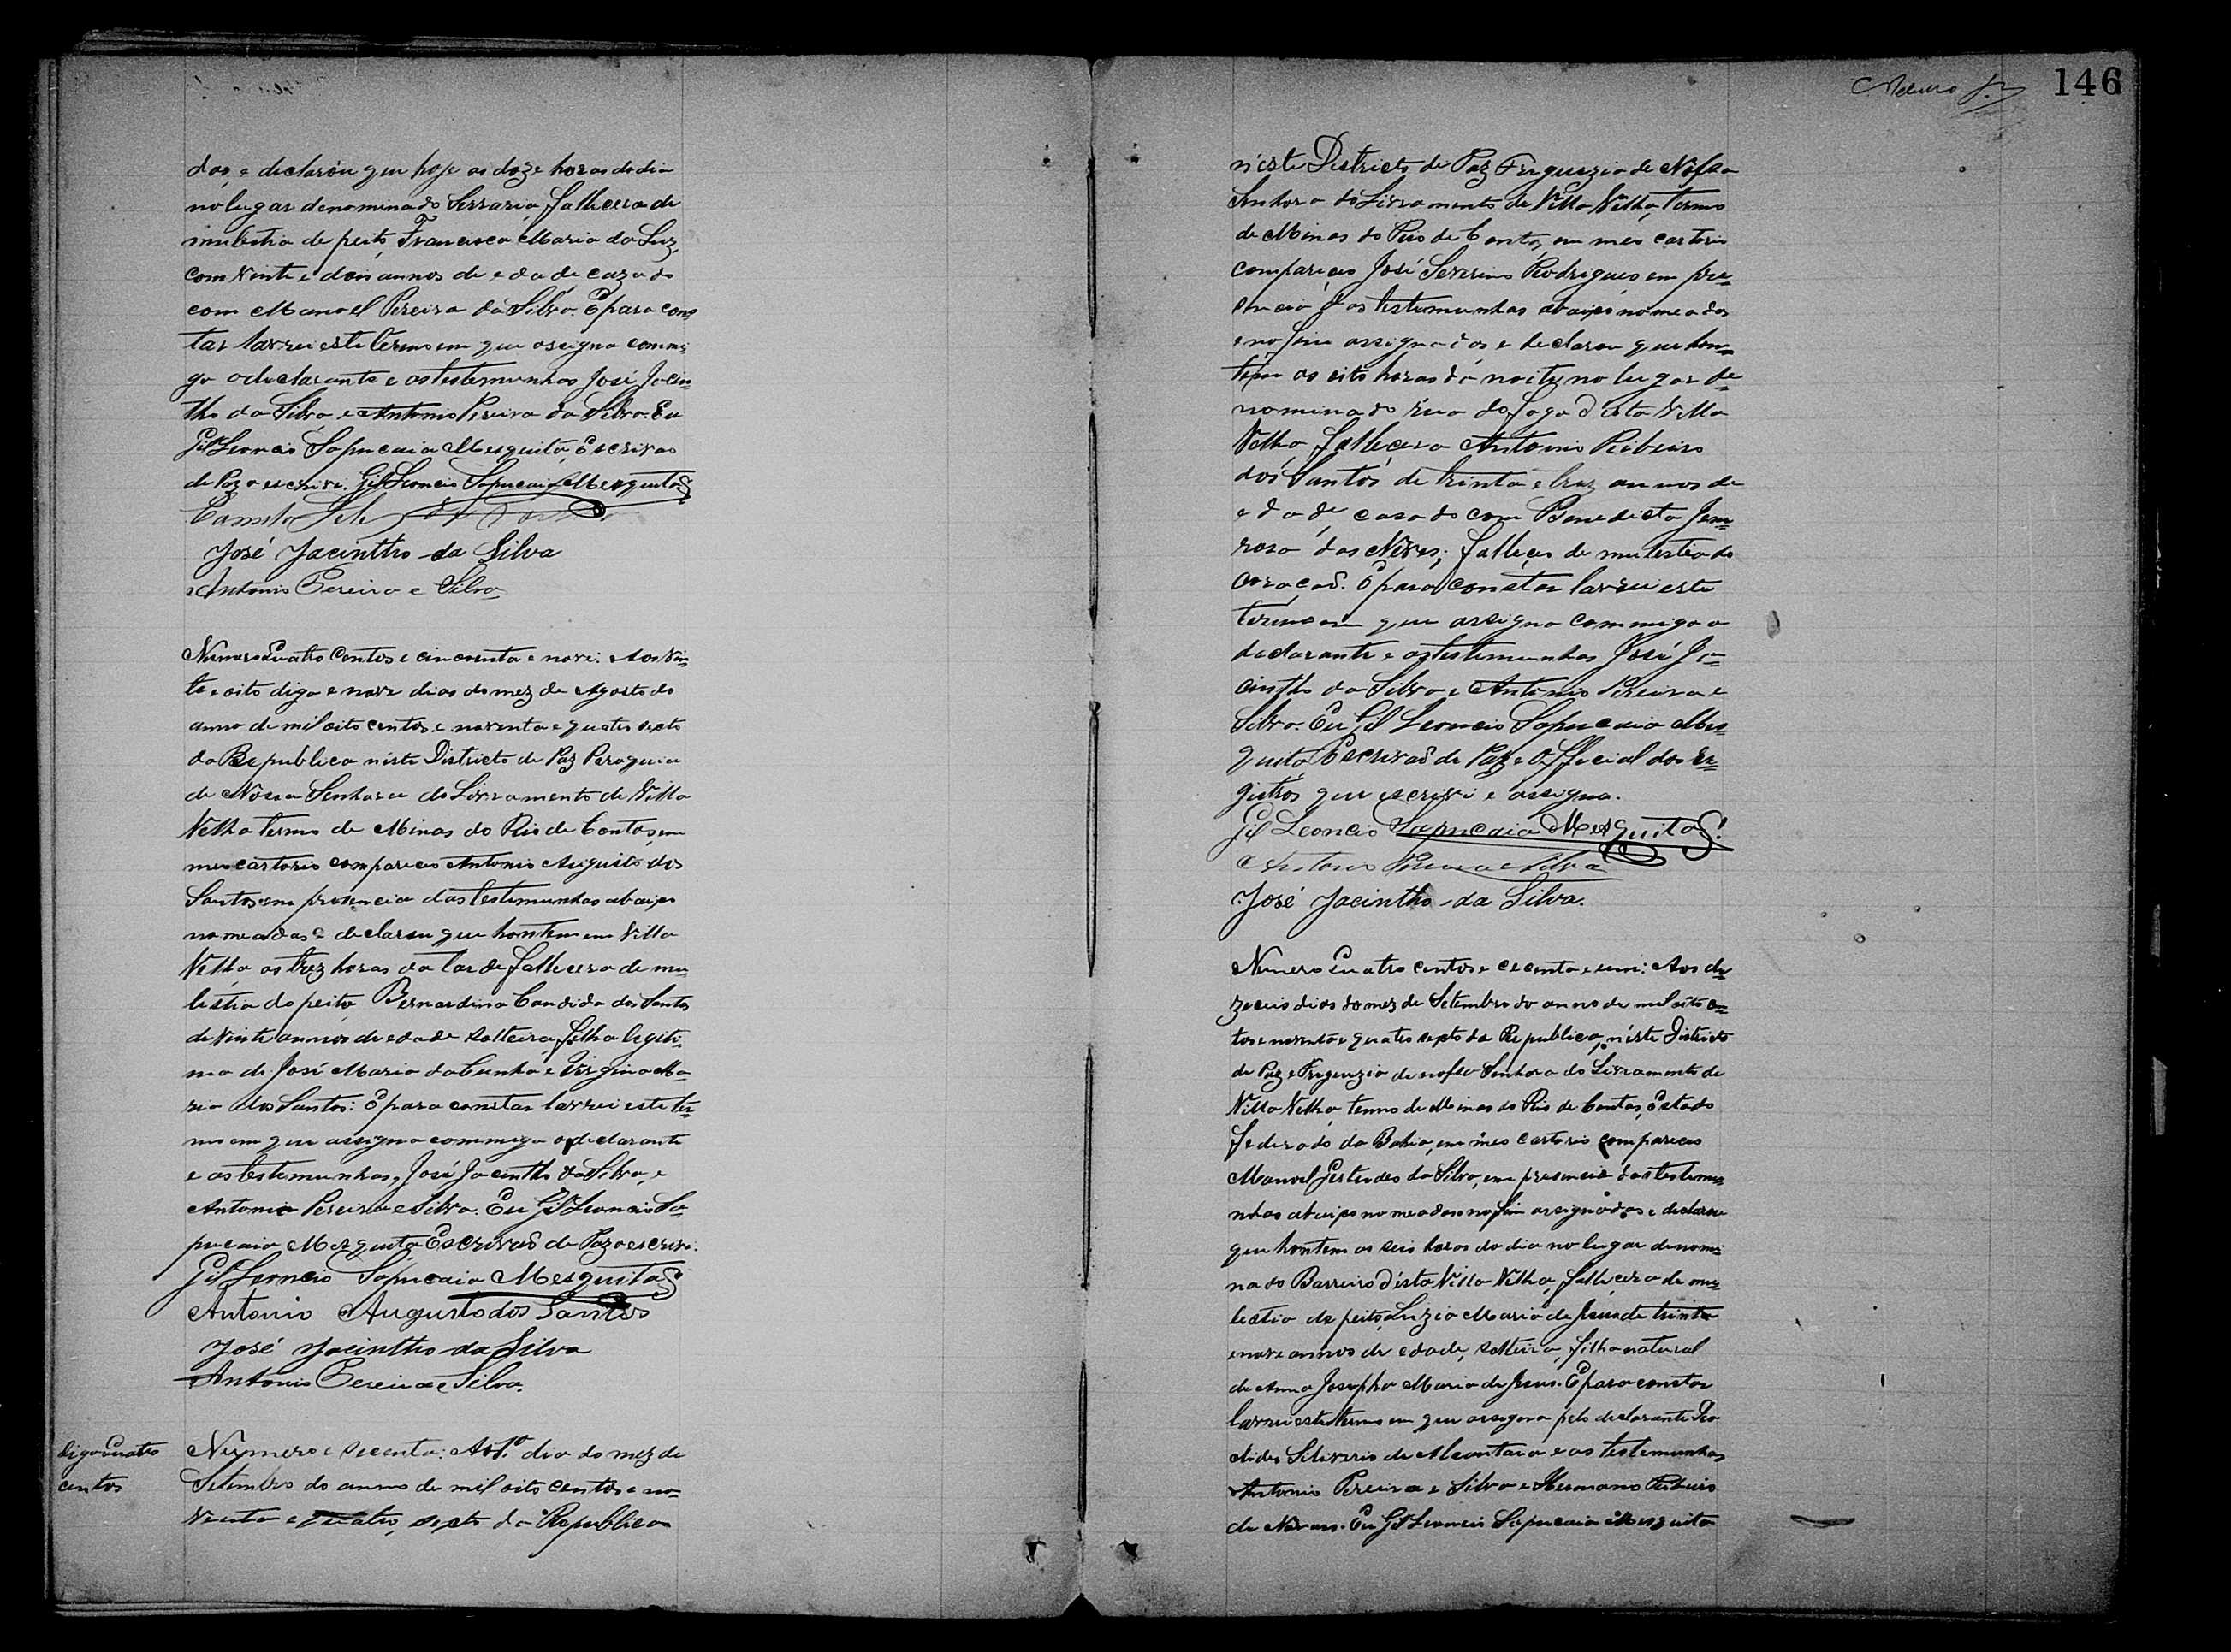 dos, e declarou que hoje as doze horas do dia
no lugar denominado Serraria, fallecera de
mulestia de peito, Francisca Maria da Luz,
com vinte e dois annos de edade cazada
com Manoel Pereira da Silva. E para cons
tar lavrei este termo em que assigna commi
go o declarante e as testemunhas José Jacin
tho da Silva e Antonio Pereira da Silva. Eu
Gil Leoncio Sapucaia Mesquita, Escrivão
de Paz o escrivi. Gil Leoncio Sapucaia Mesquita
José Jacintho da Silva
Antonio Pereira e Silva
Numero Quatro Centos e cincoenta e nove: Aos vin
te e oito digo e nove dias do mez de Agosto do
anno de mil oito centos e noventa e quatro sexto
da Republica néste Districto de Paz Paroquia
de Nossa Senhora do Livramento de Villa
Velha termo de Minas do Rio de Contas, em
meu cartorio compareceo Antonio Augusto dos
Santos em presencia das testemunhas abaixo
nomeadas e declarou que hontem em Villa
Velha as trez horas da tarde fallecera de mu
lestia do peito Bernardina Candida dos Santos
de vinte annos de edade solteira, filha legiti
ma de José Maria da Cunha e Virginia Ma
ria dos Santos: E para constar lavrei este ter
mo em que assigna commigo o declarante
e as testemunhas, José Jacintho da Silva, e
Antonio Pereira e Silva. Eu Gil Leoncio Sa
pucaia Mesquita Escrivaõ de Paz o escrivi.
Gil Leoncio Sapucaia Mesquita
Antonio Augusto dos Santos
José Jacintho da Silva
Antonio Pereira e Silva.
digo Quatro
centos
Numero e secenta: Ao 1º dia do mez de
Setembro do anno de mil oito centos e no
venta e quatro, sexto da Republica
146
néste Districto de Paz Freguezia de Nossa
Senhora do Livramento de Villa Velha, termo
de Minas do Rio de Contas, em meo cartorio
compareceo José Severino Rodrigues em pre
sencia das testemunhas abaixo nomeadas
e no fim assignadas e declarou que hon
tem as oito horas da noite no lugar de
nominado rua do Fogo désta Villa
Velha, fallecera Antonio Ribeiro
dos Santos de trinta e trez annos de
edade casado com Benedicta
das Neves; falleceu de mulestia do
coraçaõ. E para constar lavrei este
termo em que assigna commigo o
declarante e as testemunhas José Ja
cintho da Silva e Antonio Pereira e
Silva. Eu Gil Leoncio Sapucaia Mes
quita Escrivaõ de Paz e Official dos re
gistros que escrivi e assigno.
Gil Leoncio Sapucaia Mesquita
Antonio Pereira e Silva
José Jacintho da Silva.
Numero Quatro centos e secenta e um: Aos de
zeceis dias do mez de Setembro do anno de mil oito cen
tos e noventa e quatro sexto da Republica, néste Districto
de Paz e Freguezia de nossa Senhora do Livramento de
Villa Velha, termo de Minas do Rio de Contas, Estado
federado da Bahia, em meo cartorio compareceo
Manoel da Silva, em presencia das testemu
nhas abaixo nomeadas e no fim assignadas e declarou
que hontem as seis horas do dia no lugar denomi
nado Barreiro désta Villa Velha, fallecera de mu
lestia do peito, Luzia Maria de Jesus de trinta
e nove annos de edade, solteira, filha natural
de Anna Josepha Maria de Jesus. E para constar
lavrei este termo em que assigna pelo declarante
Siliverio de Alcantara e as testemunhas
Antonio Pereira e Silva e Hermano Ribeiro
de Novaes. Eu Gil Leoncio Sapucaia Mesquita